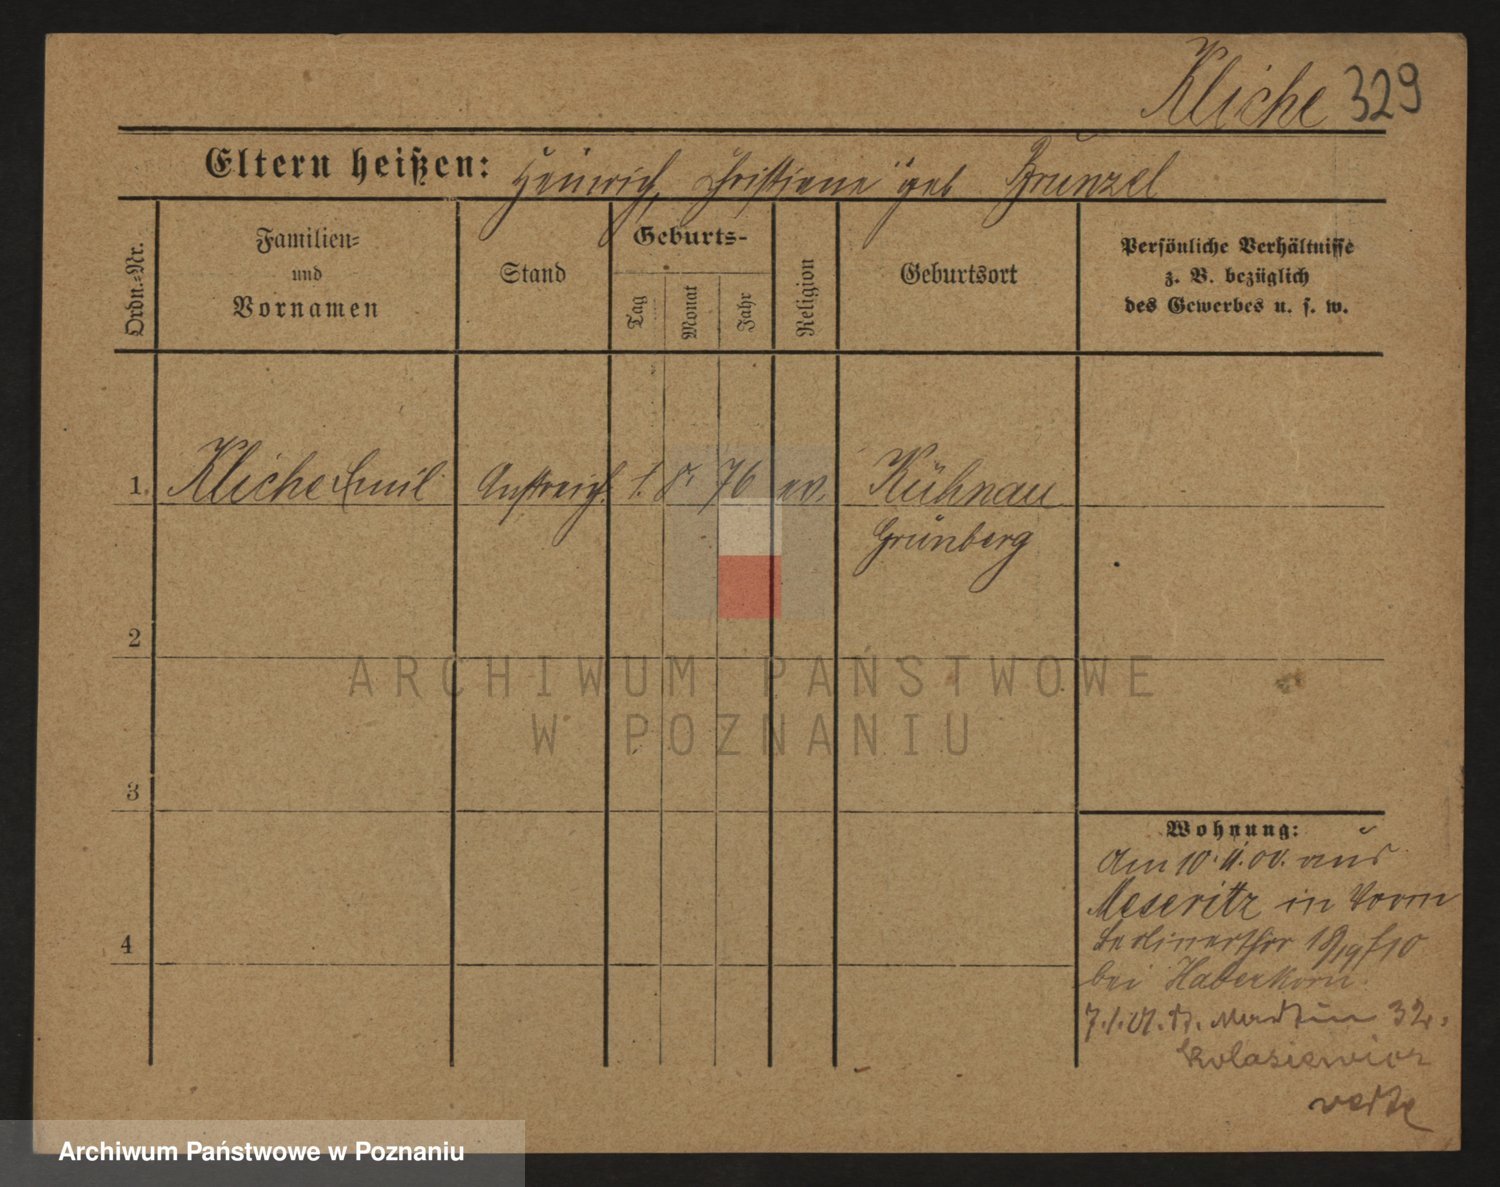 Kliche 329
Eltern heißen: Heinrich, Christiane geb Brunzel
Ordn.=Nr.
Familien=
und
Vornamen
Stand
Geburts-
Tag
Monat
Jahr
Religion
Geburtsort
Persönliche Verhältnisse
z. B. bezüglich
des Gewerbes u. s. w.
1. Kliche Emil Anstreich. 1. 8. 76 ev. Kühnau
Grünberg
2
3
4
Wohnung:
Am 10. 11. 00. aus
Meseritz in
Berlinerthor
bei Haberkorn.
7. 1. 01. St. Martin 32.
Kolasiewicz
ARCHIWUM PAŃSTWOWE
W POZNANIU
Archiwum Państwowe w Poznaniu